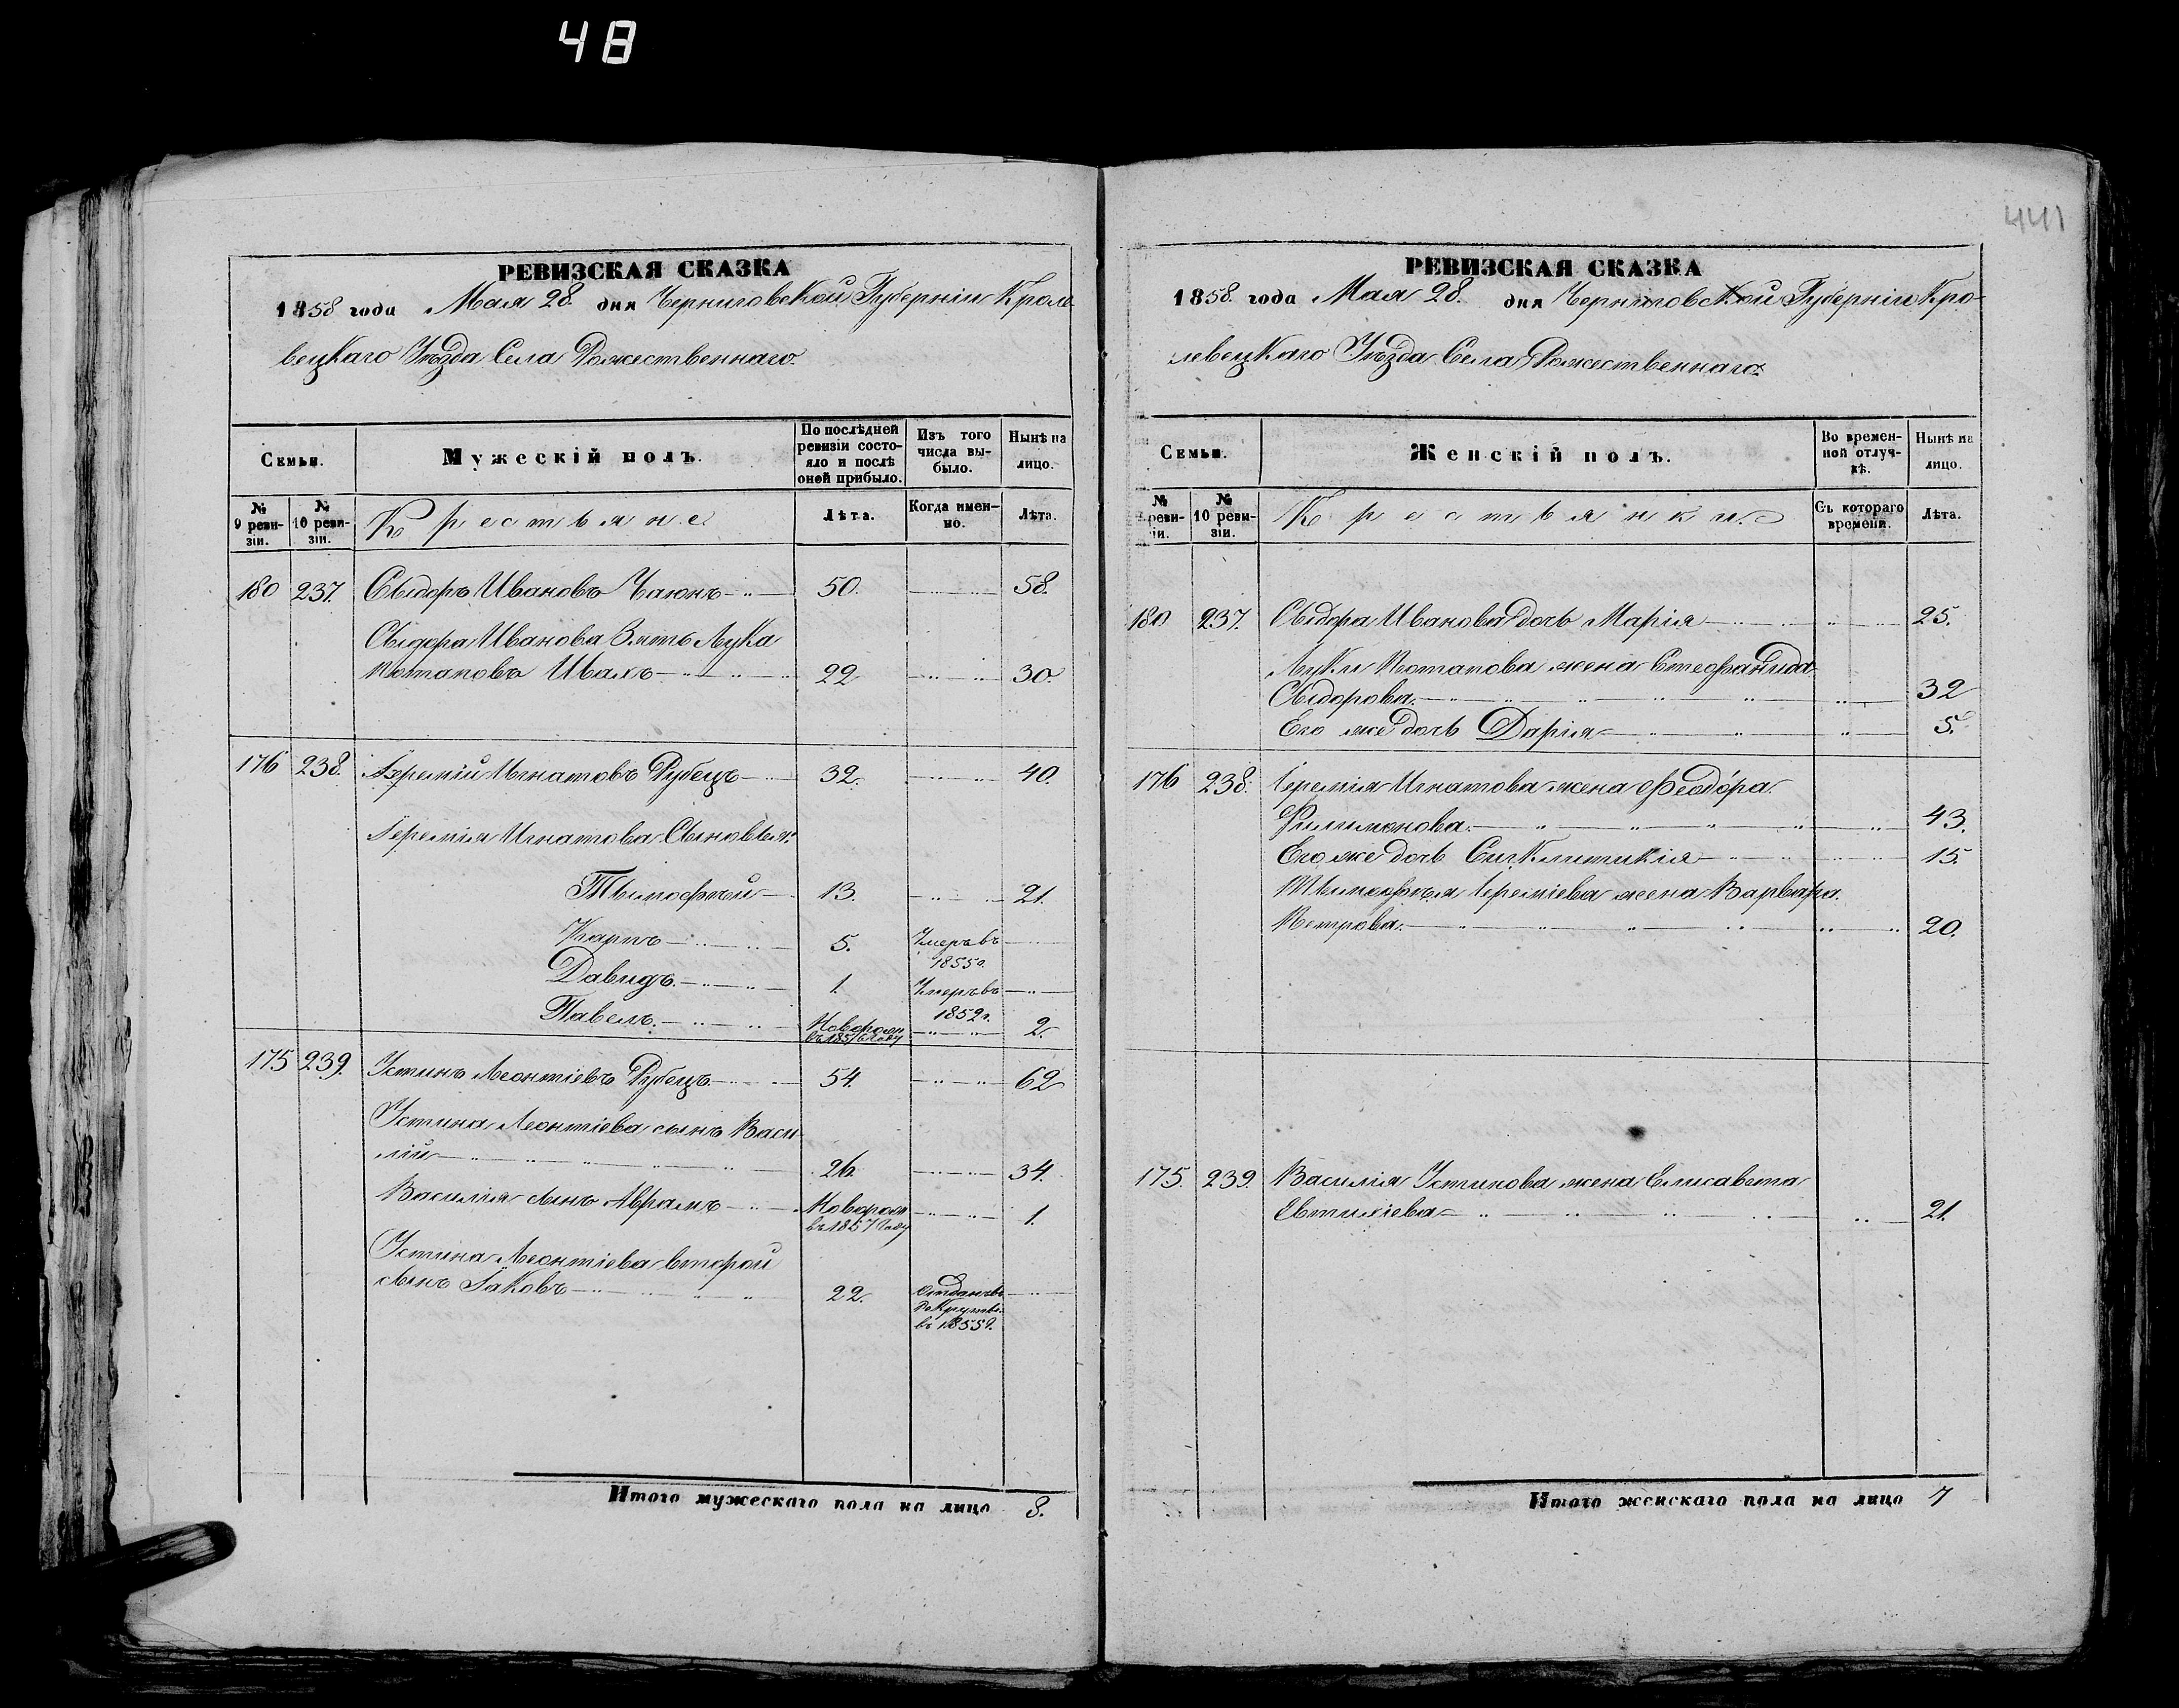 48
РЕВИЗСКАЯ СКАЗКА
1858 года Мая 28. дня Черниговской Губерніи Кроле-
вецкаго Уѣзда Села Рожественнаго.
Семьи.
Мужескій полъ.
По послѣдней ревизіи состо-яло и послѣ оной прибыло.
Изъ того числа вы-было.
Нынѣ на лицо.
№ 9 реви-зіи.
№ 10 реви-зіи.
Крестьяне
Лѣта.
Когда имен-но.
Лѣта.
180 237. Сыдоръ Ивановъ Чаюнъ 50. 58.
Сыдора Иванова Зять Лука
Потаповъ Швахъ 22 30.
176 238. Іеремій Игнатовъ Рубецъ 32. 40.
Іеремія Игнатова Сыновья:
Тымофтей 13. 21.
Карпъ 5. Умеръ въ 1855г.
Давидъ. 1. Умеръ въ 1852г.
Павелъ. Новорожд въ 1856 году 2.
175 239. Устинъ Леонтіевъ Рубецъ 54. 62
Устина Леонтіева сынъ Васи-
лій 26. 34.
Василія сынъ Аврамъ Новорож въ 1857 году 1.
Устина Леонтіева второй
сынъ Іаковъ 22. Отданъ въ Рекруты въ 1855г.
Итого мужескаго пола на лицо 8.
441
РЕВИЗСКАЯ СКАЗКА
1858. года Мая 28. дня Черниговской Губерніи Кро-
левецкаго Уѣзда Села Рожественнаго.
Семьи.
Женскій полъ.
Во времен-ной отлуч-кѣ.
Нынѣ на лицо.
№ реви-зіи.
№ 10 реви-зіи.
Крестьянки.
Съ котораго времени.
Лѣта.
180 237. Сыдора Иванова дочь Марія 25.
Луки Потапова жена Стефанида
Сыдорова. 32
Его же дочь Дарія 5.
176 238. Іеремія Игнатова жена Феодора
Филимонова. 43.
Его же дочь Сигклитикія 15.
Тымофтея Іереміева жена Варвара
Петрова. 20.
175. 239 Василія Устинова жена Елисавета
Евтихіева 21.
Итого женскаго пола на лицо 7